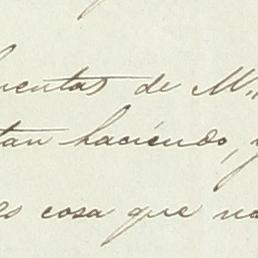 cuentas de M
tan haciendo, y
es cosa que no